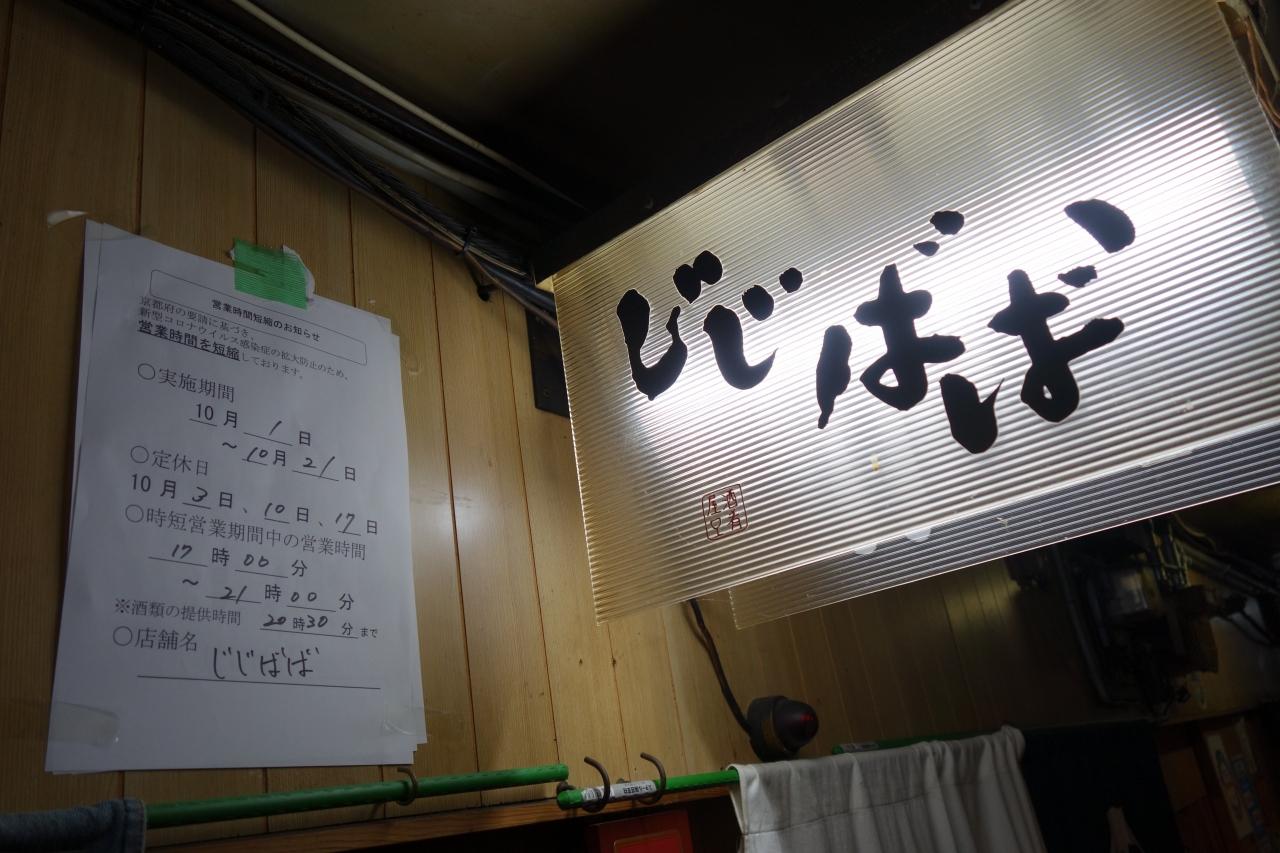 営業時間短縮のお知らせ
京都府の要請に基づき、
新型コロナウイルス感染症の拡大防止のため、
営業時間を短縮しております。
○実施期間
10月1日
～10月21日
○定休日
10月3日、10日、17日
○時短営業期間中の営業時間
17時00分
～21時00分
※酒類の提供時間 20時30分まで
○店舗名
じじばば
じじばば